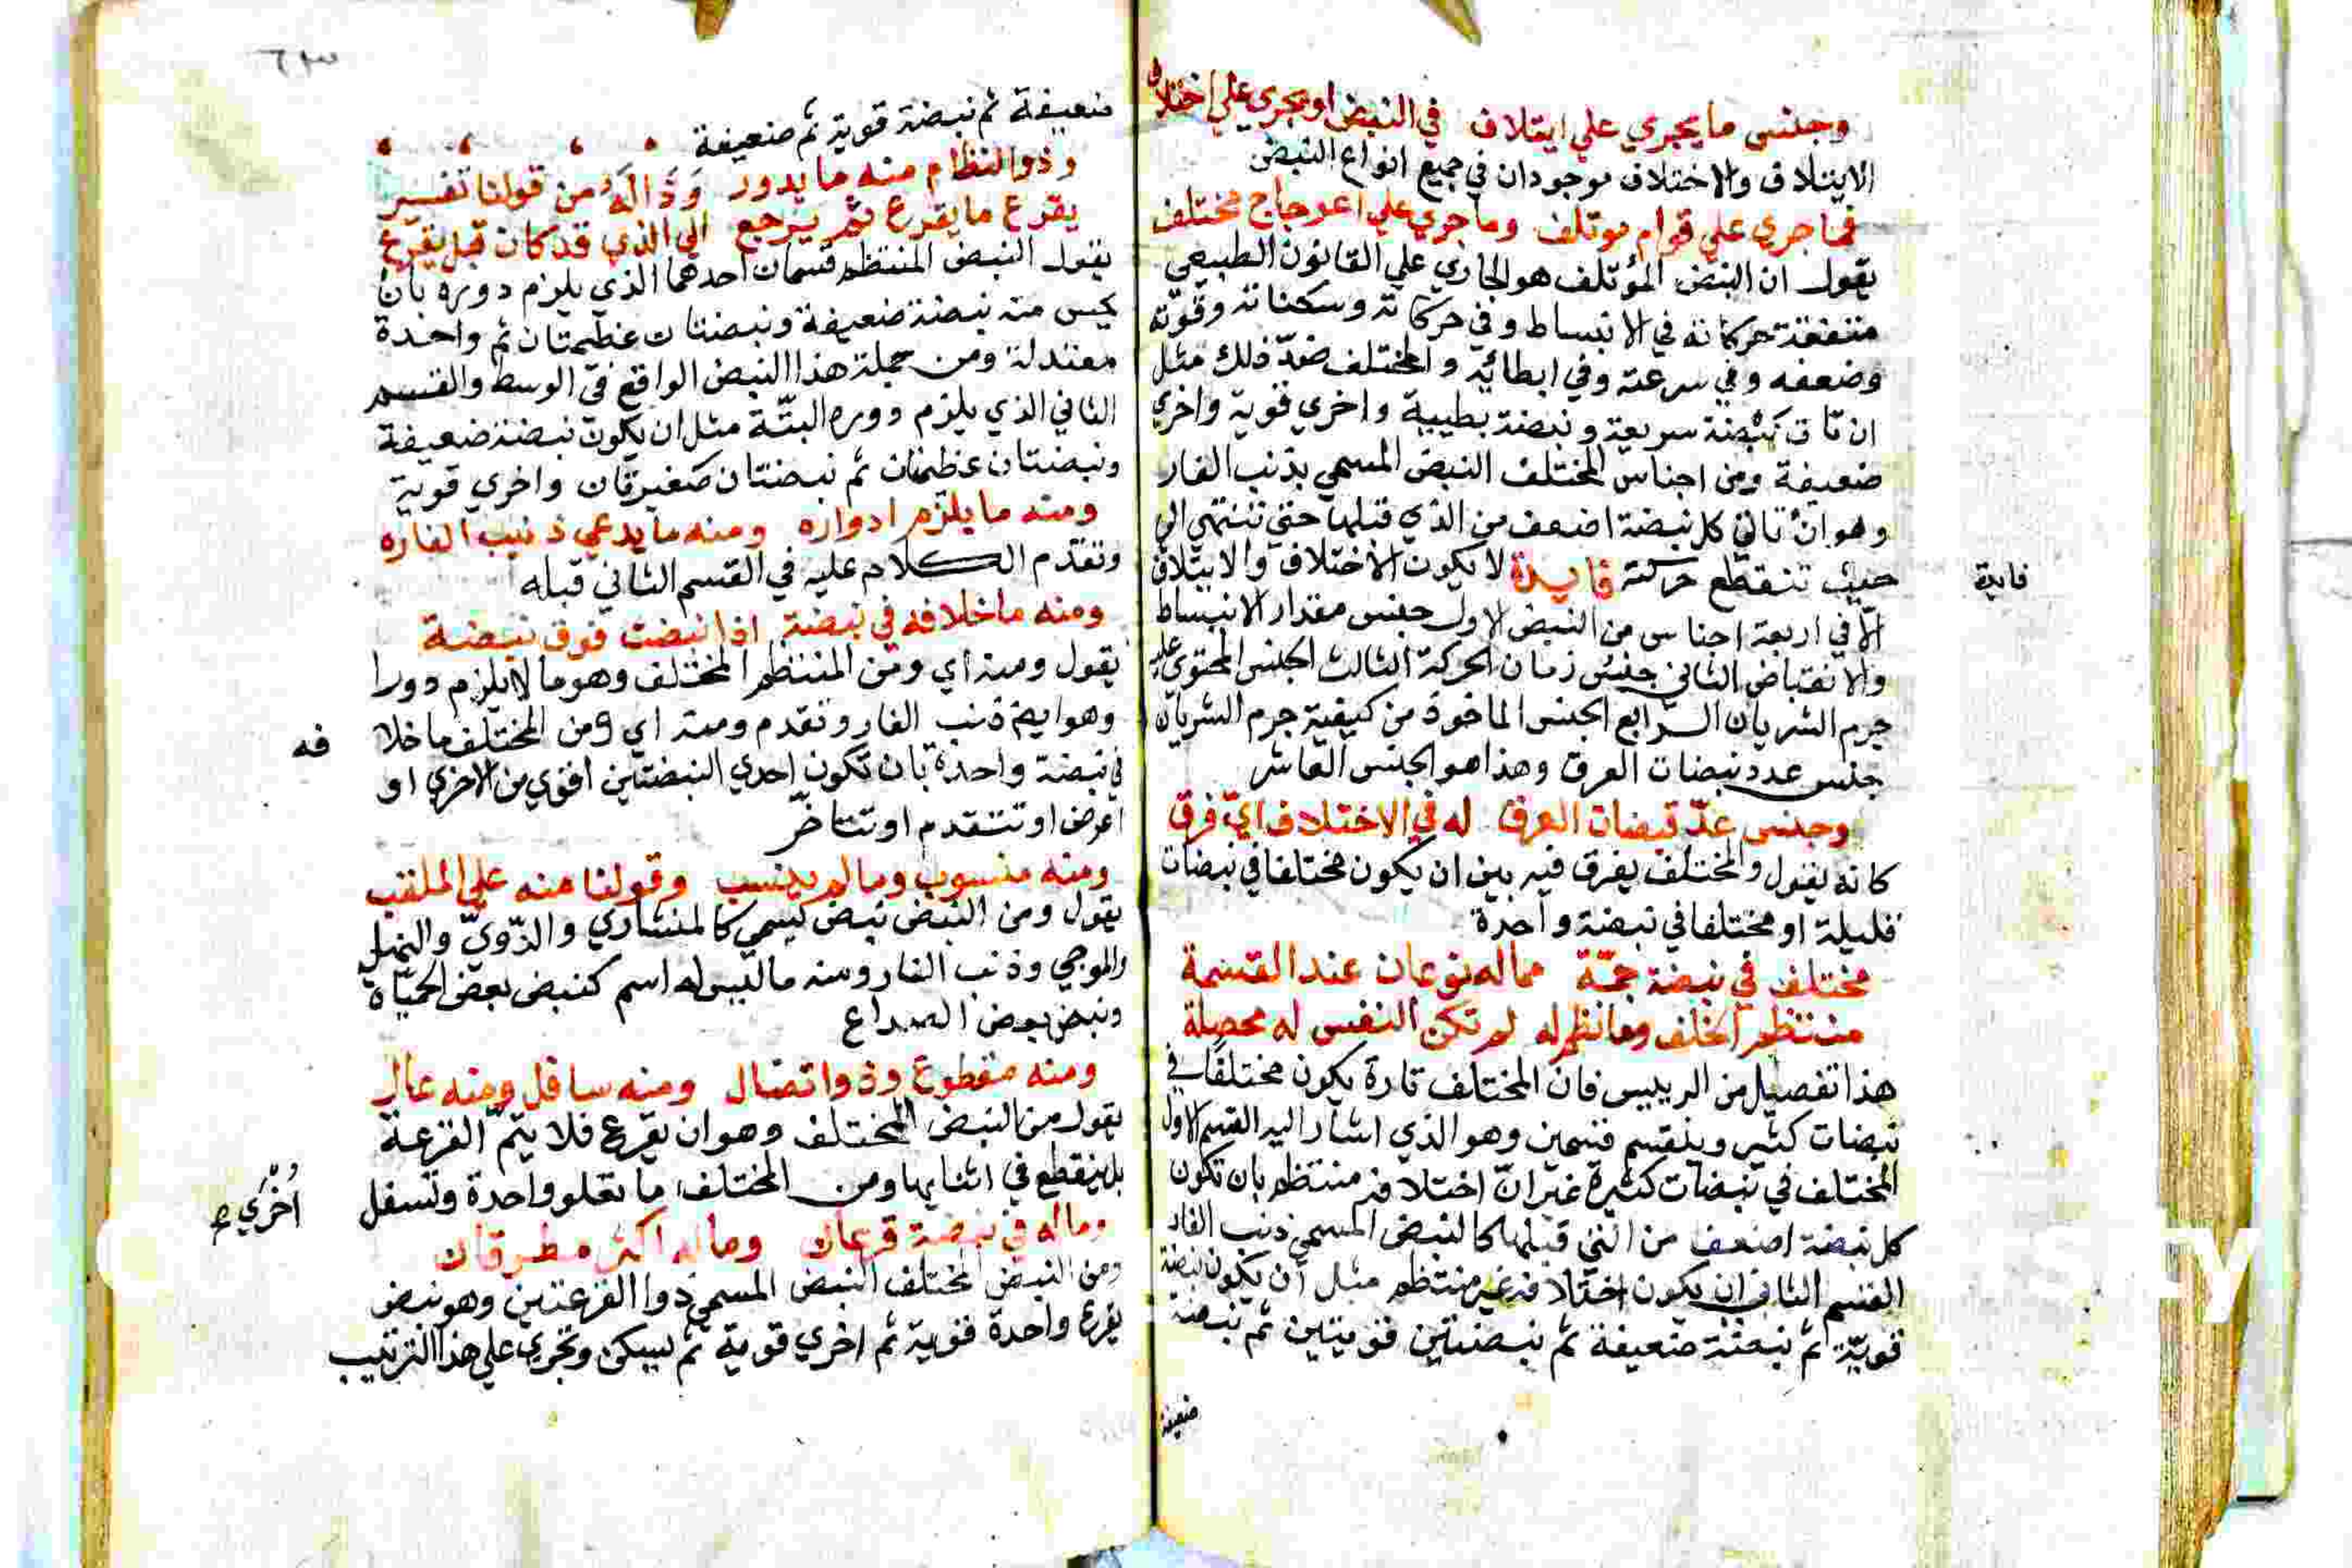 وجنس ما يجري علي ايتلاف في النبض او يجري علي اختلاف
الايتلاف والاختلاف موجودان في جميع انواع النبض
فما جري علي قوام موتلف وما جري علي اعوجاج مختلف
يقول ان النبض المؤتلف هو الجاري علي القانون الطبيعي
متفقة حركاته في الانبساط وفي حركاته وسكناته وقوته
وضعفه وفي سرعته وفي ابطائيه والمختلف ضدّ ذلك مثل
ان تات نبضة سريعة ونبضة بطيية واخري قوية واخري
ضعيفة ومن اجناس المختلف النبض المسمي بذنب الفار
وهو ان تاتي كل نبضة اضعف من الذي قبلها حتي تنتهي الي
حيث تنقطع حركته فايدة لا يكون الاختلاف والايتلاف
فايدة
الّا في اربعة اجناس من النبض الاول جنس مقدار الانبساط
والانقباض الثاني جنس زمان الحركة الثالث الجنس المحتوي علي
جرم الشريان الرابع الجنس الماخوذ من كيفية جرم الشريان
جنس عدد نبضات العرق وهذا هو الجنس العاشر
وجنس عدّ نبضات العرق له في الاختلاف ايّ فرق
كانه يقول والمختلف يفرق فيه بين ان يكون مختلفا في نبضات
قليلة او مختلفا في نبضة واحدة
مختلف في نبضة جمّة مما له نوعان عند القسمة
منتظم الخلف وما نظم له لم تكن النفس له محصلة
هذا تفصيل من الرييس فان المختلف تارة يكون مختلفًا في
نبضات كثير وينقسم قسمين وهو الذي اشار اليه القسم الاول
المختلف في نبضات كثيرة غير انّ اختلافه منتظم بان تكون
كل نبضة اضعف من التي قبلها كالنبض المسمي ذنب الفار
القسم الثاني ان يكون اختلافه غير منتظم مثل ان يكون نبضة
قويّة ثم نبضة ضعيفة ثم نبضتين قويتين ثم نبضة
ضعيفة
٦٣
ضعيفة ثم نبضة قوية ثم ضعيفة
وذو النظام منه ما يدور وَذَا لَهُ من قولنا تفسير
يقرع ما يقرع ثم يرجع الي الذي قد كان قبل يقرع
يقول النبض المنتظم قسمان احدهما الذي يلزم دوره بان
يحس منه نبضة ضعيفة ونبضتان عظيمتان ثم واحدة
معتدلة ومن جملة هذا النبض الواقع في الوسط والقسم
الثاني الذي يلزم دوره البتّة مثل ان يكون نبضة ضعيفة
ونبضتان عظيمتان ثم نبضتان صغيرتان واخري قوية
ومنه ما يلزم ادواره ومنه ما يدعي ذنيب الفاره
وتقدم الكلام عليه في القسم الثاني قبله
ومنه ما خلافه في نبضة اذا نبضت فوق نبضة
يقول ومنه اي ومن المنتظم المختلف وهو ما لا يلزم دورا
وهو ايضا ذنب الفار وتقدم ومنه اي ومن المختلف ما خلا
فه
في نبضة واحدة بان تكون احدي النبضتين اقوي من الاخري او
اعرض او تتقدم او تتاخّر
ومنه منسوب وما لم ينسب وقولنا منه علي الملقب
يقول ومن النبض نبض يسمي كالمنشاري والدّوديّ والنمل
والموجي وذنب الفار ومنه ما ليس له اسم كنبض بعض الحميّاة
ونبض بعض الصداع
ومنه مقطوع وذو اتصال ومنه سافل ومنه عال
يقول من النبض المختلف وهو ان يقرع فلا يتمّ القرعة
بل ينقطع في اثنايها ومن المختلف ما تعلو واحدة وتسفل
اُخْرُي صح
وما له في نبضة قرعتان وما له اكثر مطرقات
ومن النبض المختلف النبض المسمي ذوا القرعتين وهو نبض
يقرع واحدة قوية ثم اخري قوية ثم يسكن وتجري علي هذا الترتيب